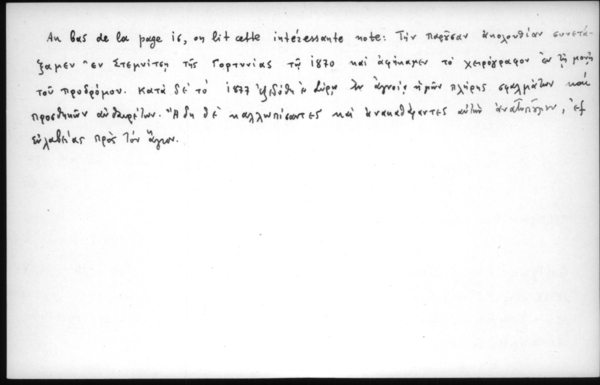 Au bas de la page 16, on lit cette intéressante note: Τὴν παροῦσαν ἀκολουθίαν συνετά-
ξαμεν ἐν Στεμνίτσῃ τῆς Γορτυνίας τῷ 1870 καὶ ἀφήκαμεν τὸ χειρόγραφον ἐν τῇ μονῇ
τοῦ Προδρόμου. Κατὰ δὲ τὸ 1877 ἐξεδόθη ἐν ἀγνοίᾳ ἡμῶν πλήρης σφαλμάτων καὶ
προσθηκῶν αὐθαιρέτων. Ἤδη δὲ καλλωπίσαντες καὶ ἀνακαθάραντες αὐτὴν ἀνατυποῦμεν, ἐξ
εὐλαβείας πρὸς τὸν ἅγιον.